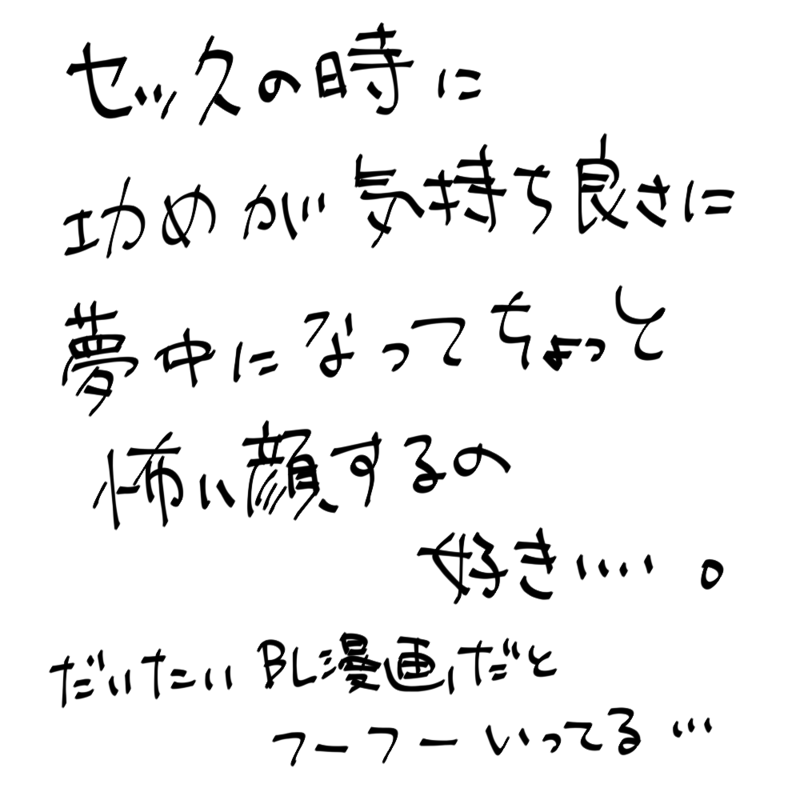 セックの時に
功めが気持ち良さに
夢中になってちょっと
怖い顔するの
好き‥‥。
だいたいBL漫画だと
フーフーいってる…